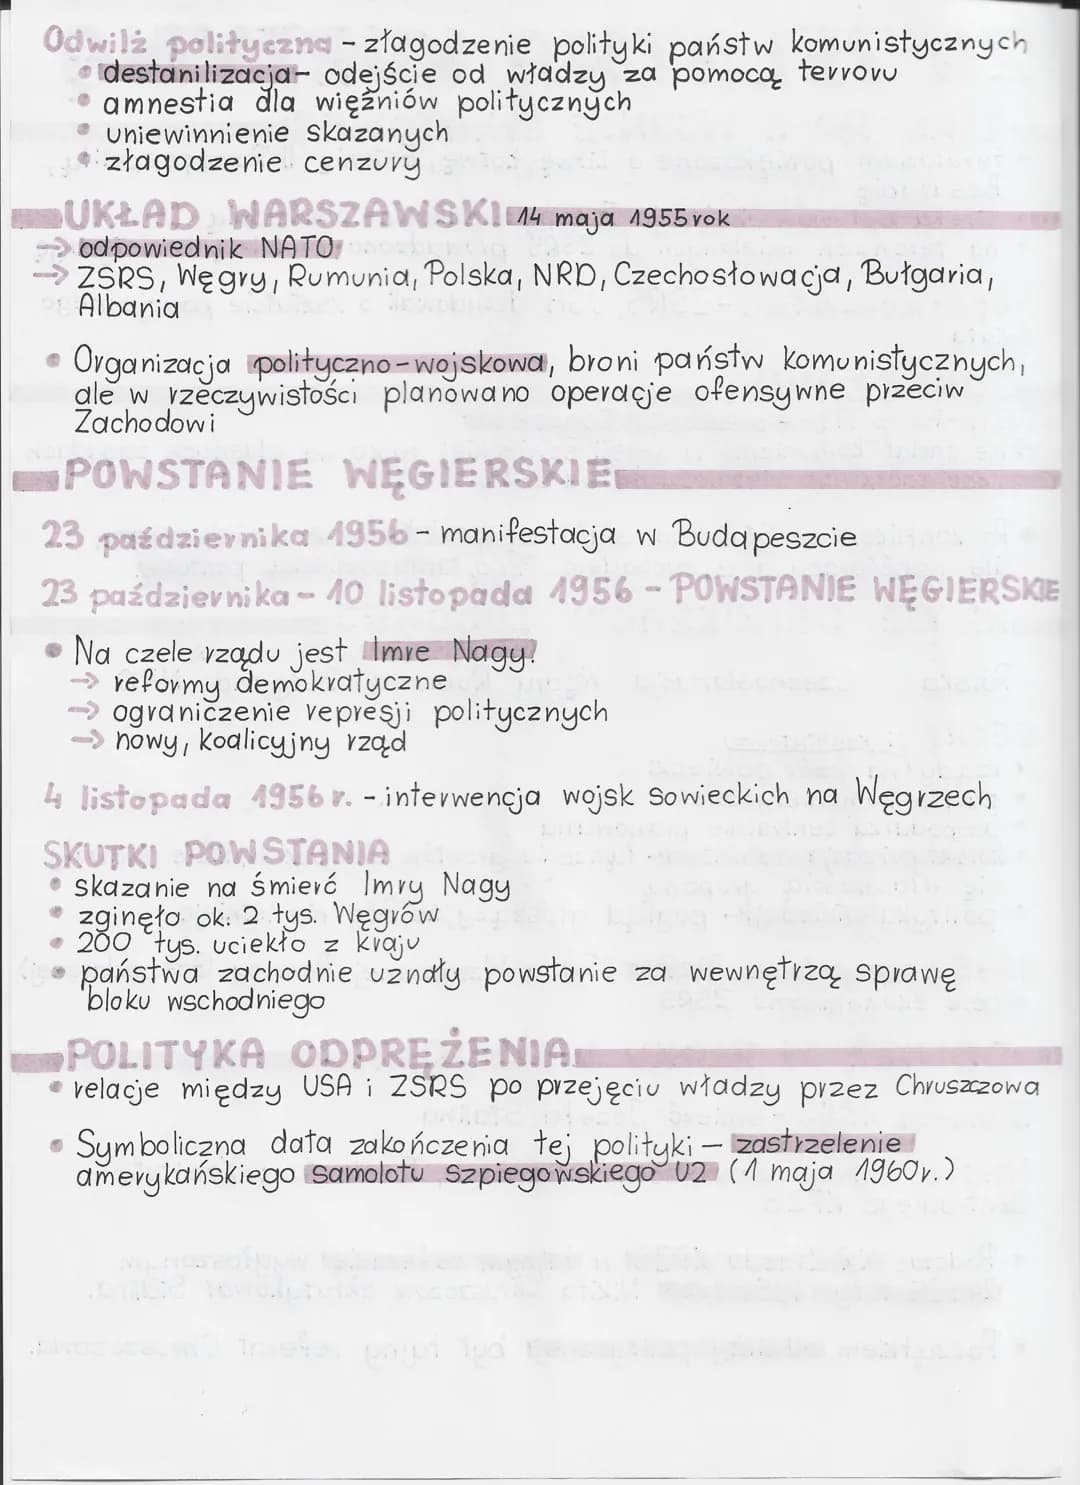 Odwilż polityczna - złagodzenie polityki państw komunistycznych
• destanilizacja - odejście od władzy za pomocą terroru
• amnestia dla więźniów politycznych
• uniewinnienie skazanych
• złagodzenie cenzury
UKŁAD WARSZAWSKI 14 maja 1955 rok
→ odpowiednik NATO
→ ZSRS, Węgry, Rumunia, Polska, NRD, Czechosłowacja, Bułgaria,
Albania
• Organizacja polityczno-wojskowa, broni państw komunistycznych,
ale w rzeczywistości planowano operacje ofensywne przeciw
Zachodowi
POWSTANIE WĘGIERSKIE
23 października 1956 - manifestacja w Budapeszcie
23 października - 10 listopada 1956 - POWSTANIE WĘGIERSKIE
• Na czele rządu jest Imre Nagy:
→ reformy demokratyczne
→ ograniczenie represji politycznych
→ nowy, koalicyjny rząd
4 listopada 1956 r. - interwencja wojsk sowieckich na Węgrzech
SKUTKI POWSTANIA
• skazanie na śmierć Imry Nagy
• zginęło ok. 2 tys. Węgrów
• 200 tys. uciekło z kraju
• państwa zachodnie uznały powstanie za wewnętrzą sprawę
bloku wschodniego
POLITYKA ODPRĘŻENIA
• relacje między USA i ZSRS po przejęciu władzy przez Chruszczowa
• Symboliczna data zakończenia tej polityki - zastrzelenie
amerykańskiego samolotu szpiegowskiego U2 (1 maja 1960r.)